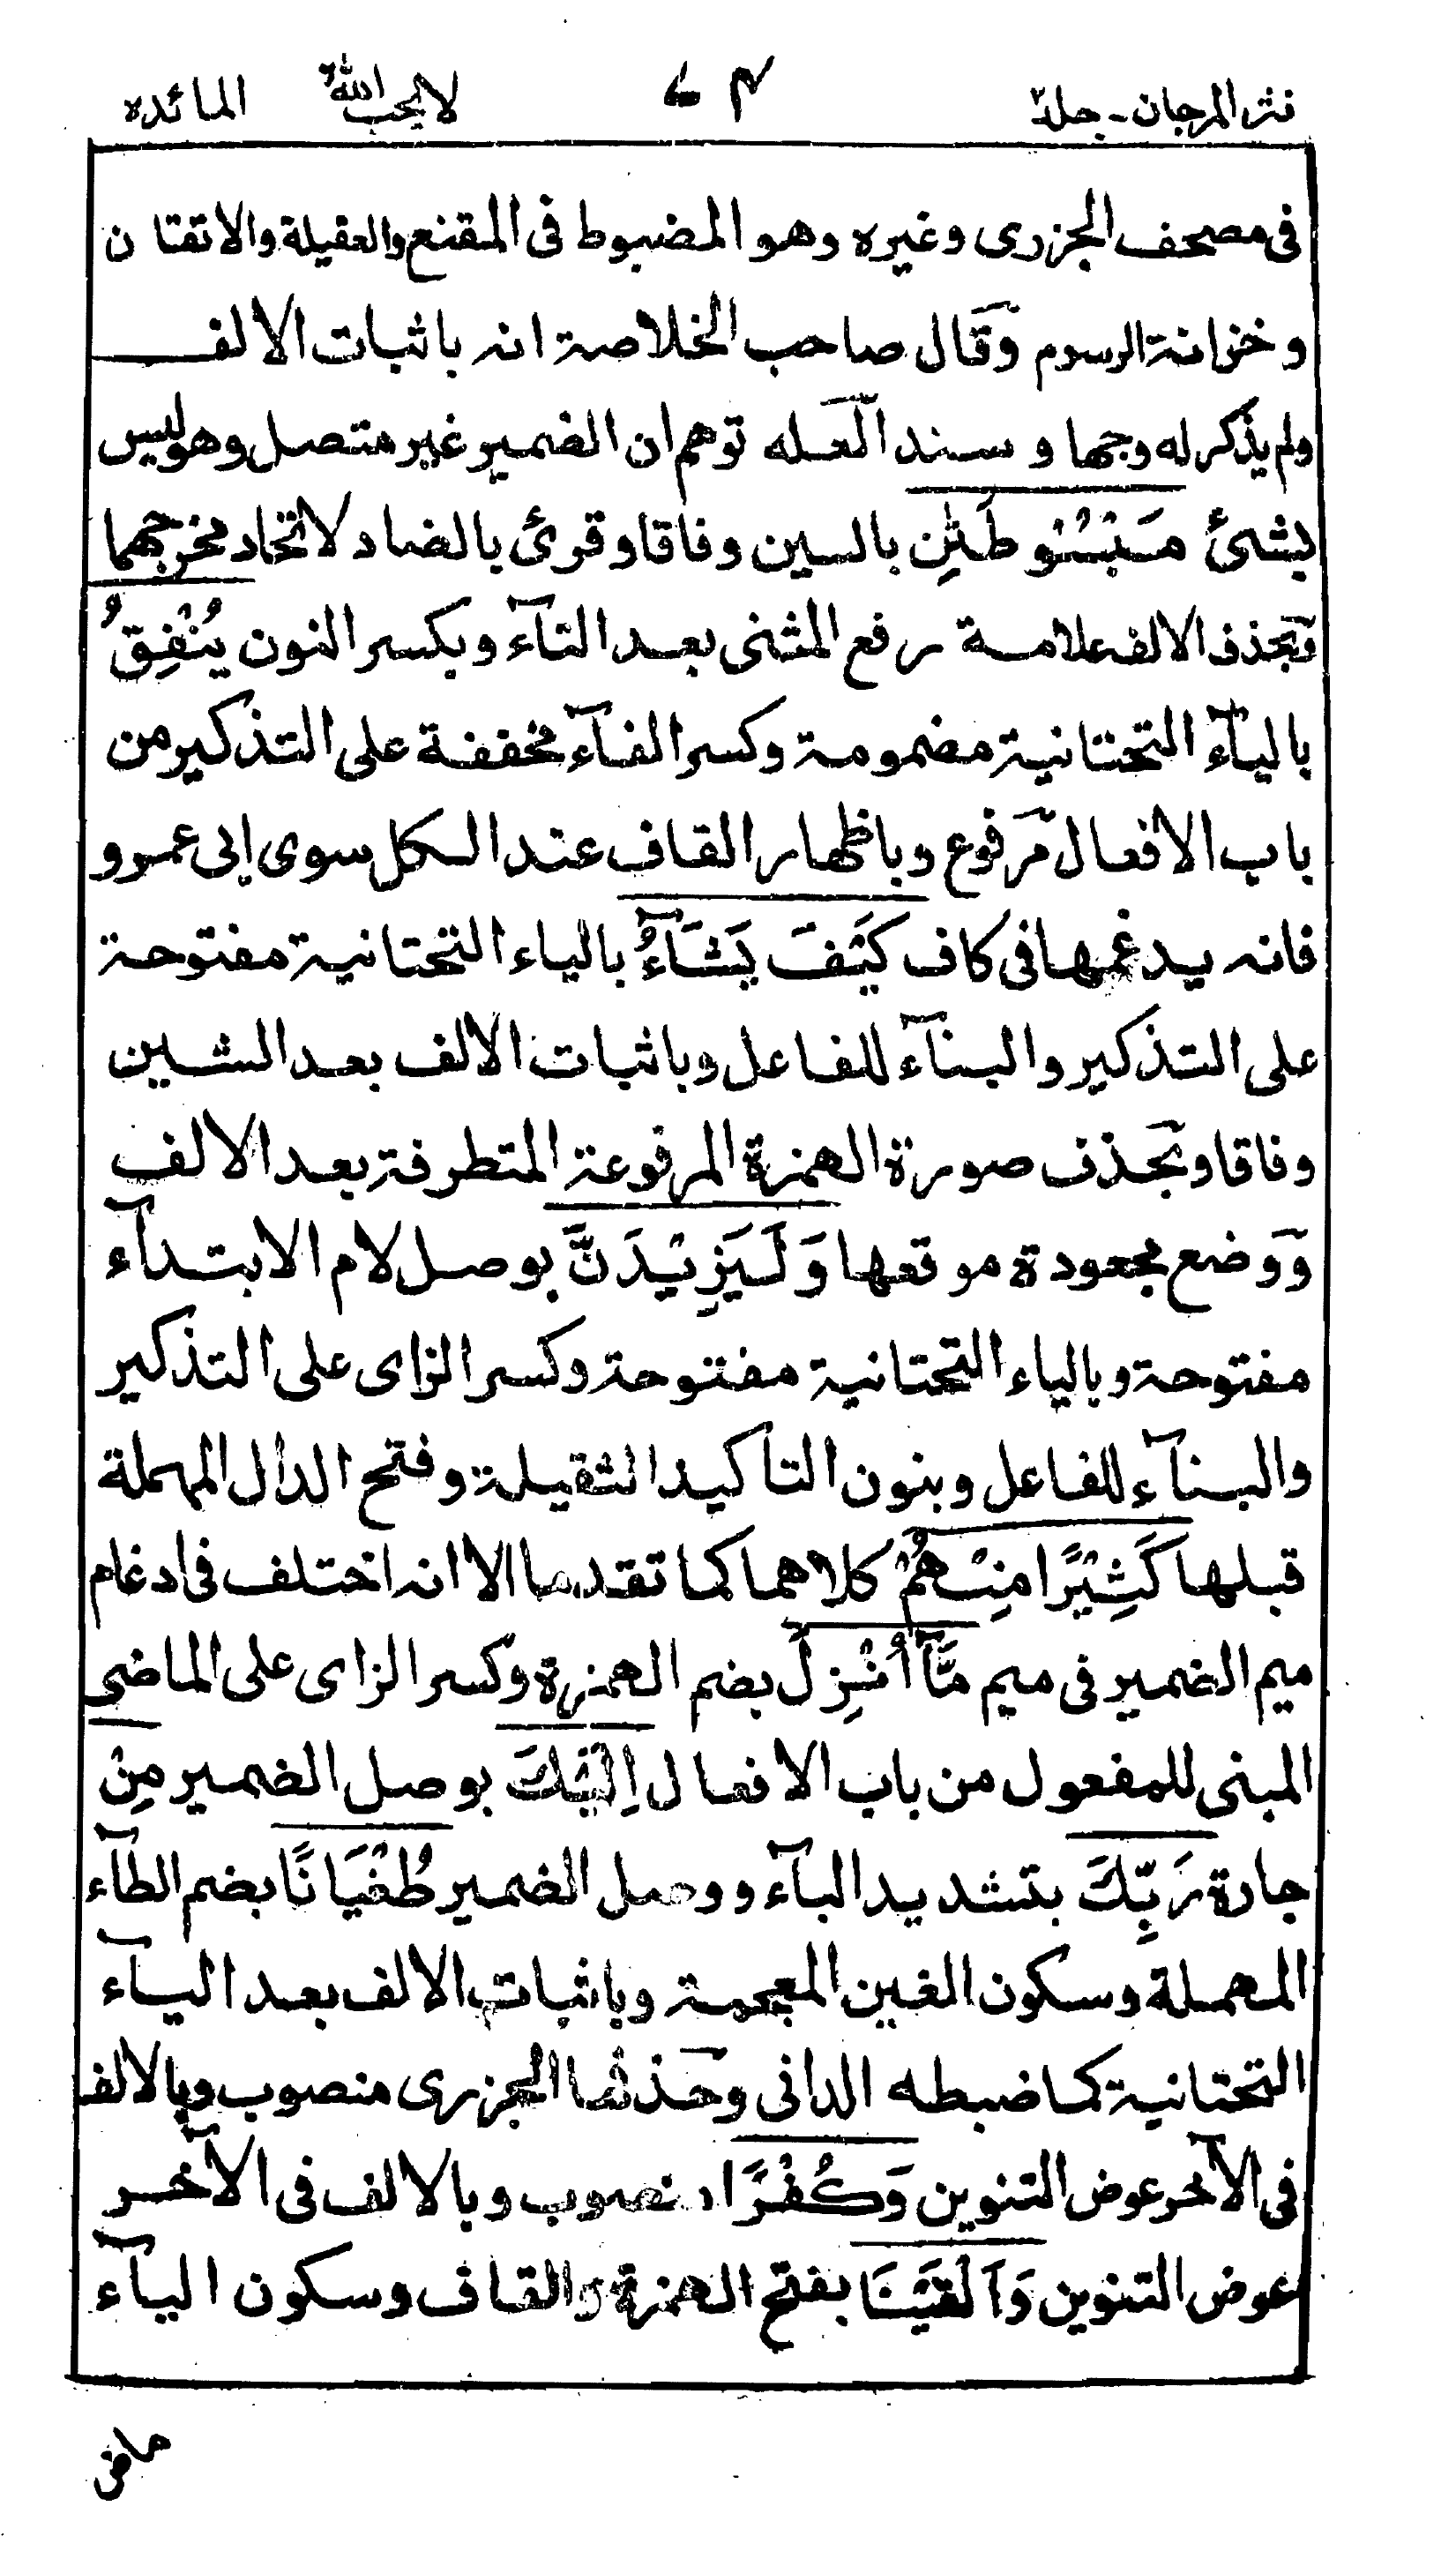 نثر المرجان - جلد٢ ٧٤ لا يحب الله المائده
فى مصحف الجزرى وغيره وهو المضبوط فى المقنع والعقيلة والاتقان
وخزانة الرسوم وقال صاحب الخلاصة انه باثبات الالف
ولم يذكر له وجها و سند العله توهم ان الضمير غير متصل وهو ليس
بشئ مَبْسُوْطَتٰنِ بالسين وفاقا وقرئ بالصاد لاتحاد مخرجهما
وبحذف الالف علامة رفع المثنى بعد التآء وبكسر النون يُنْفِقُ
باليآء التحتانية مضمومة وكسر الفآء مخففة على التذكير من
باب الافعال مرفوع وباظهار القاف عند الكل سوى ابى عمرو
فانه يدغمها فى كاف كَيْفَ يَشَآءُ بالياء التحتانية مفتوحة
على التذكير والبنآء للفاعل وباثبات الالف بعد الشين
وفاقا وبحذف صورة الهمزة المرفوعة المتطرفة بعد الالف
ووضع مجعودة موقعها وَلَيَزِيْدَنَّ بوصل لام الابتدآء
مفتوحة وبالياء التحتانية مفتوحة وكسر الزاى على التذكير
والبنآء للفاعل وبنون التاكيد الثقيلة وفتح الدال المهملة
قبلها كَثِيْرًا مِنْهُمْ كلاهما كما تقدما الا انه اختلف فى ادغام
ميم الضمير فى ميم مَّآ اُنْزِلَ بضم الهمزة وكسر الزاى على الماضى
المبنى للمفعول من باب الافعال اِلَيْكَ بوصل الضمير مِنْ
جارة رَبِّكَ بتشديد البآء ووصل الضمير طُغْيَانًا بضم الطآء
المهملة وسكون الغين المعجمة وباثبات الالف بعد اليآء
التحتانية كما ضبطه الدانى وحذفها الجزرى منصوب وبالالف
فى الآخر عوض التنوين وَكُفْرًا منصوب وبالالف فى الآخر
عوض التنوين وَاَلْقَيْنَا بفتح الهمزة والقاف وسكون اليآء
ماض